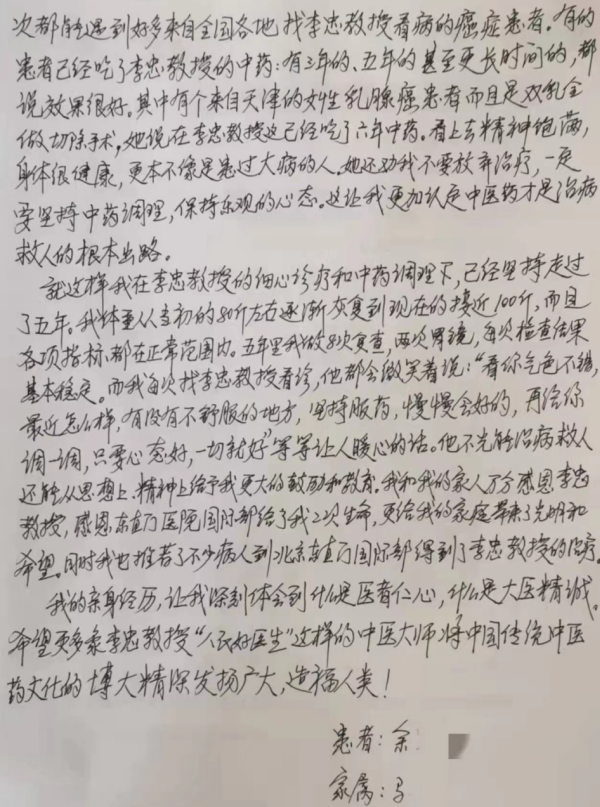 次都能遇到好多来自全国各地找李忠教授看病的癌症患者。有的
患者已经吃了李忠教授的中药:有三年的、五年的甚至更长时间的,都
说效果很好。其中有个来自天津的女性乳腺癌患者而且是双乳全
做切除手术。她说在李忠教授这已经吃了六年中药。看上去精神饱满,
身体很健康,更本不像是患过大病的人。她还劝我不要放弃治疗,一定
要坚持中药调理,保持乐观的心态。这让我更加认定中医药才是治病
救人的根本出路。
就这样我在李忠教授的细心诊疗和中药调理下,已经坚持走过
了五年。我体重从当初的80斤左右逐渐恢复到现在的接近100斤,而且
各项指标都在正常范围内。五年里我做8次复查,两次胃镜,每次检查结果
基本稳定。而我每次找李忠教授看诊,他都会微笑着说:“看你气色不错,
最近怎么样,有没有不舒服的地方,坚持服药,慢慢会好的,再给你
调一调,只要心态好,一切就好”等等让人暖心的话。他不光能治病救人
还能从思想上、精神上给予我更大的鼓励和教育。我和我的家人万分感恩李忠
教授,感恩东直门医院国际部给了我2次生命,更给我的家庭带来了光明和
希望。同时我也推荐了不少病人到北京东直门国际部得到了李忠教授的治疗。
我的亲身经历,让我深刻体会到什么是医者仁心,什么是大医精诚。
希望更多象李忠教授“人民好医生”这样的中医大师将中国传统中医
药文化的博大精深发扬广大,造福人类!
患者:余
家属:马